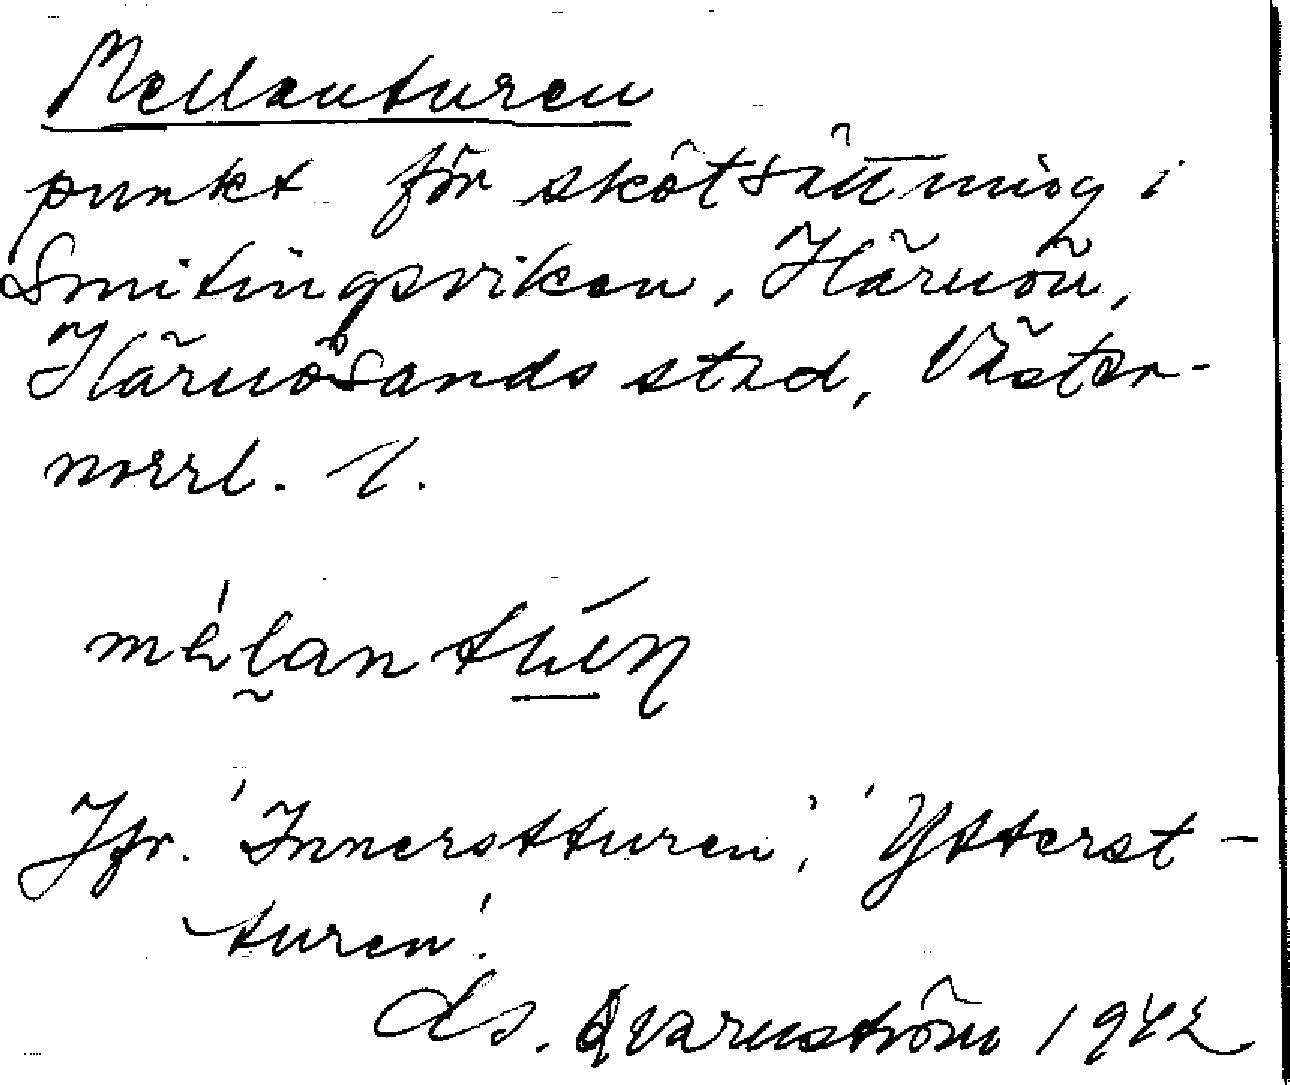 Mellanturen
punkt för skötsättning i
Smitingsviken, Härnön,
Härnösands stad, Väster-
norrl. l.
Jfr. 'Innerstturen', 'Ytterst-
turen'.
Ds. Qvarnström 1942